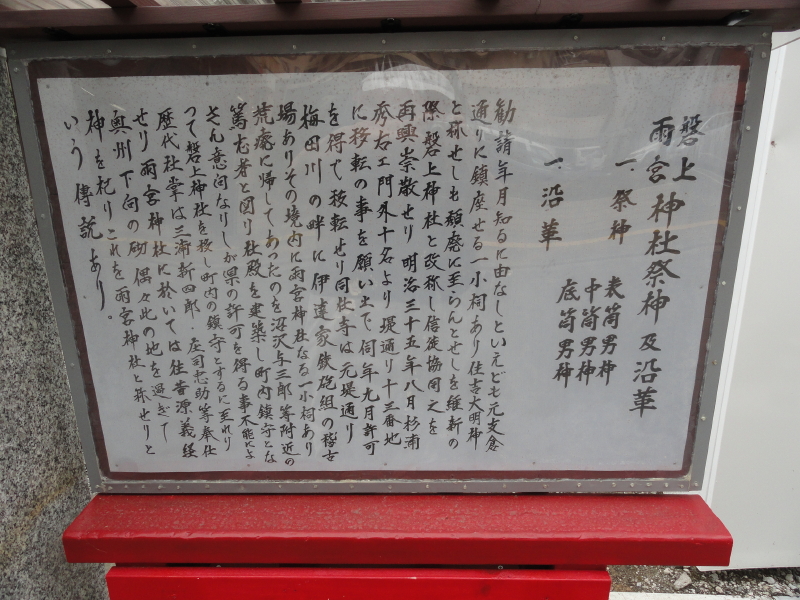 磐上
雨宮 神社祭神及沿革
一、祭神 表筒男神
中筒男神
底筒男神
一、沿革
勧請年月知るに由なしといえども元支倉
通りに鎮座せる一小祠あり住吉大明神
と称せしも頽廃に至らんとせしを維新の
際磐上神社と改称し信徒協同之を
再興崇敬せり 明治三十五年八月杉浦
彦右エ門外十名より 堤通り十三番地
に移転の事を願い出で 同年九月許可
を得て移転せり同社寺は元堤通り
梅田川の畔に伊達家鉄砲組の稽古
場ありその境内に雨宮神社なる一小祠あり
荒廃に帰してあったのを沼沢与三郎等附近の
篤志者と図り社殿を建築し町内鎮守とな
さん意向なりしが県の許可を得る事不能によ
って磐上神社を移し町内の鎮守とするに至れり
歴代社掌は三浦新四郎・庄司忠助等奉仕
せり 雨宮神社に於いては往昔源義経
奥州下向の砌 偶々此の地を過ぎて
神を祀りこれを雨宮神社と称せりと
いう傳説あり。